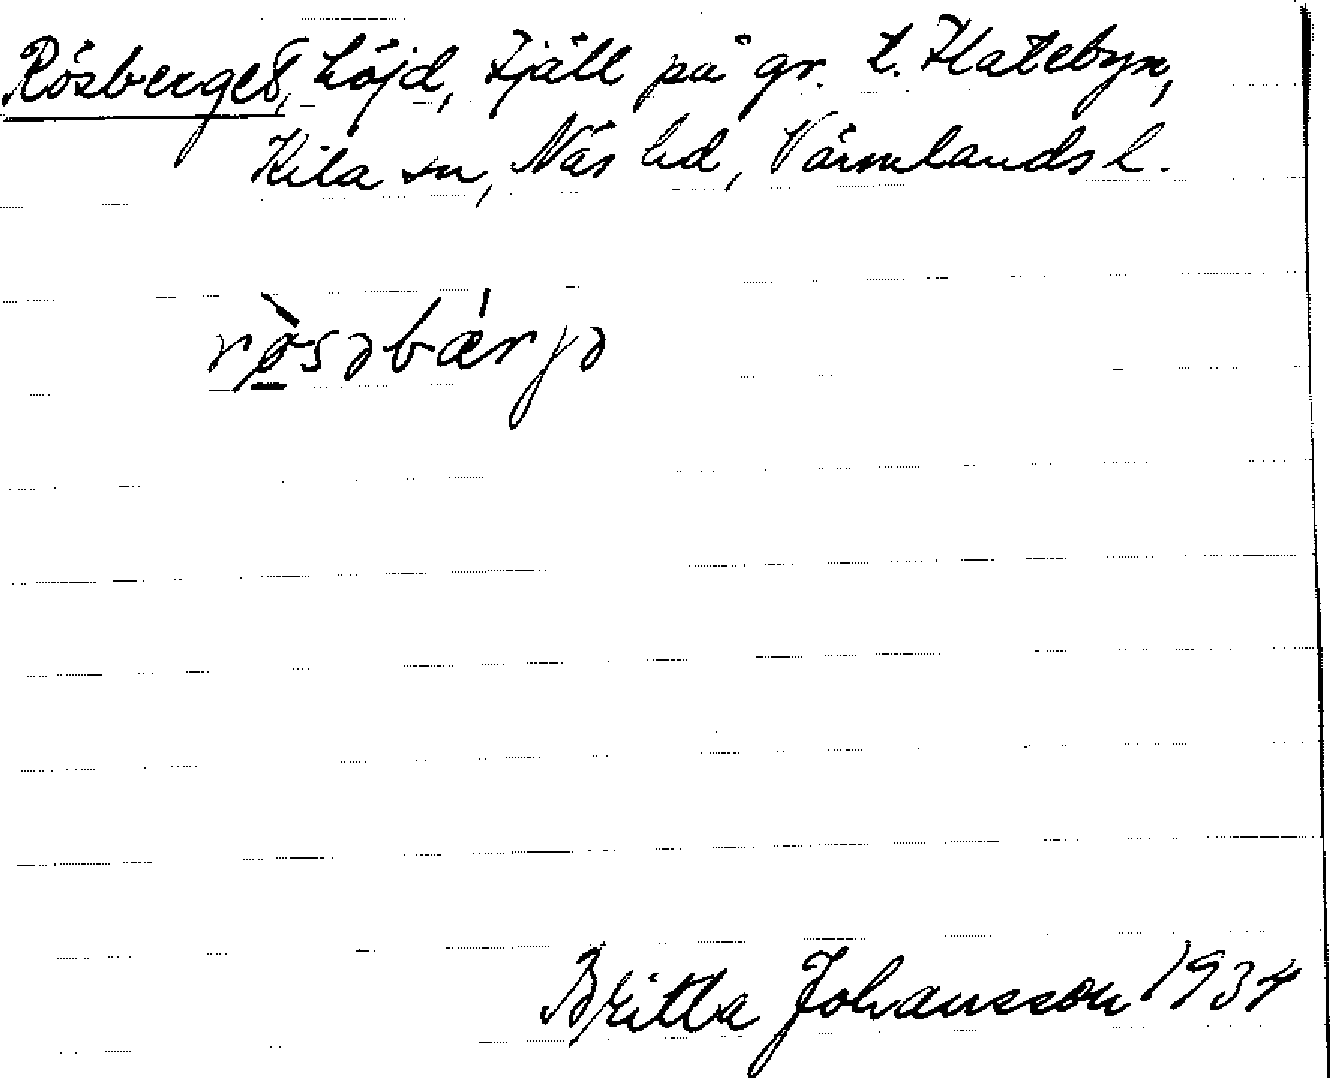 Rösberget, höjd, fjäll på gr. t. Flatebyn,
Kila sn, Näs hd, Värmlands l.
rø̀səbǽrjə
Britta Johansson 1934